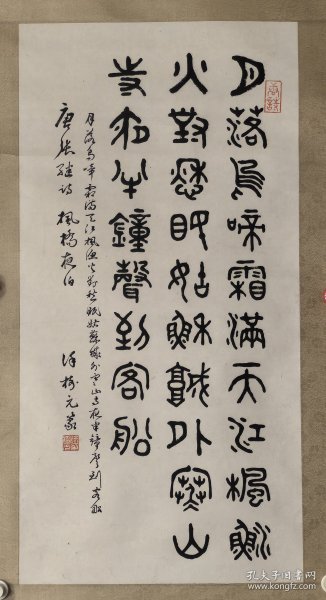 月落烏啼霜滿天江楓漁
火對愁眠姑穌城外寒山
寺夜半鐘聲到客船
月落烏啼霜滿天江楓漁火對愁眠姑蘇城外寒山寺夜半鐘聲到客船
唐張繼詩 楓橋夜泊
元篆
孔夫子旧书网
www.kongfz.com